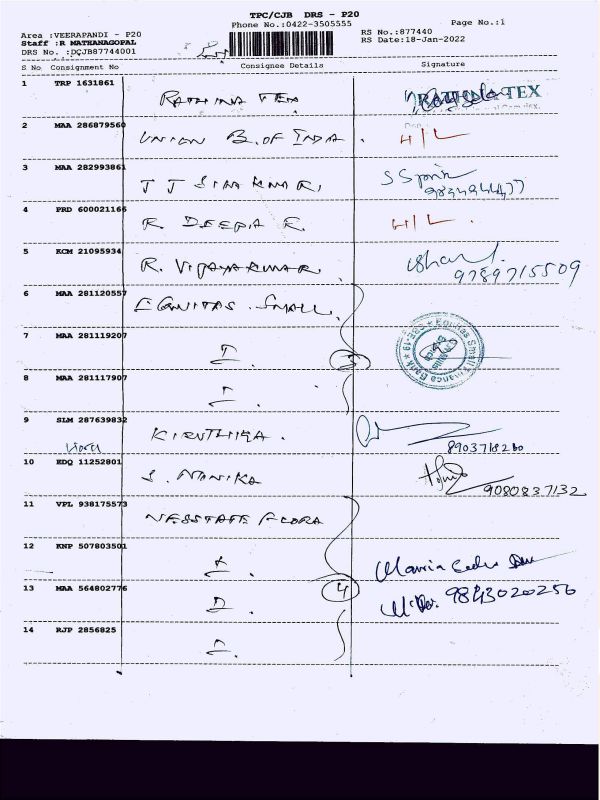 TPC/CJB DRS - P20
Phone No.:0422-3505555
Page No.:1
Area :VEERAPANDI - P20
Staff :R MATHANAGOPAL
DRS No. :DCJB87744001
RS No.:877440
RS Date:18-Jan-2022
S No Consignment No Consignee Details Signature
1 TRP 1631861 RATHNA TEX RATHNA TEX
2 MAA 286879560 UNION B. OF INDA. H/L
3 MAA 282993861 J J SIVA KUMAR,
4 PRD 600021166 R. DEEPA R. H/L.
5 KCM 21095934 R. VIJAYAKUMAR. 9789715509
6 MAA 281120557 EQUITAS SMALL.
7 MAA 281119207 3 Equitas Small Finance Bank
8 MAA 281117907
9 SLM 287639832 KIRUTHIKA. 8903718260
10 EDQ 11252801 S. 9080837132
11 VPL 938175573 FLORA
12 KNP 507803501
13 MAA 564802776 D. 4 9843020256
14 RJP 2856825